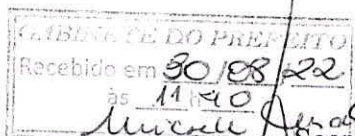 GABINETE DO PREFEITO
Recebido em 30/08/22
às 11h40